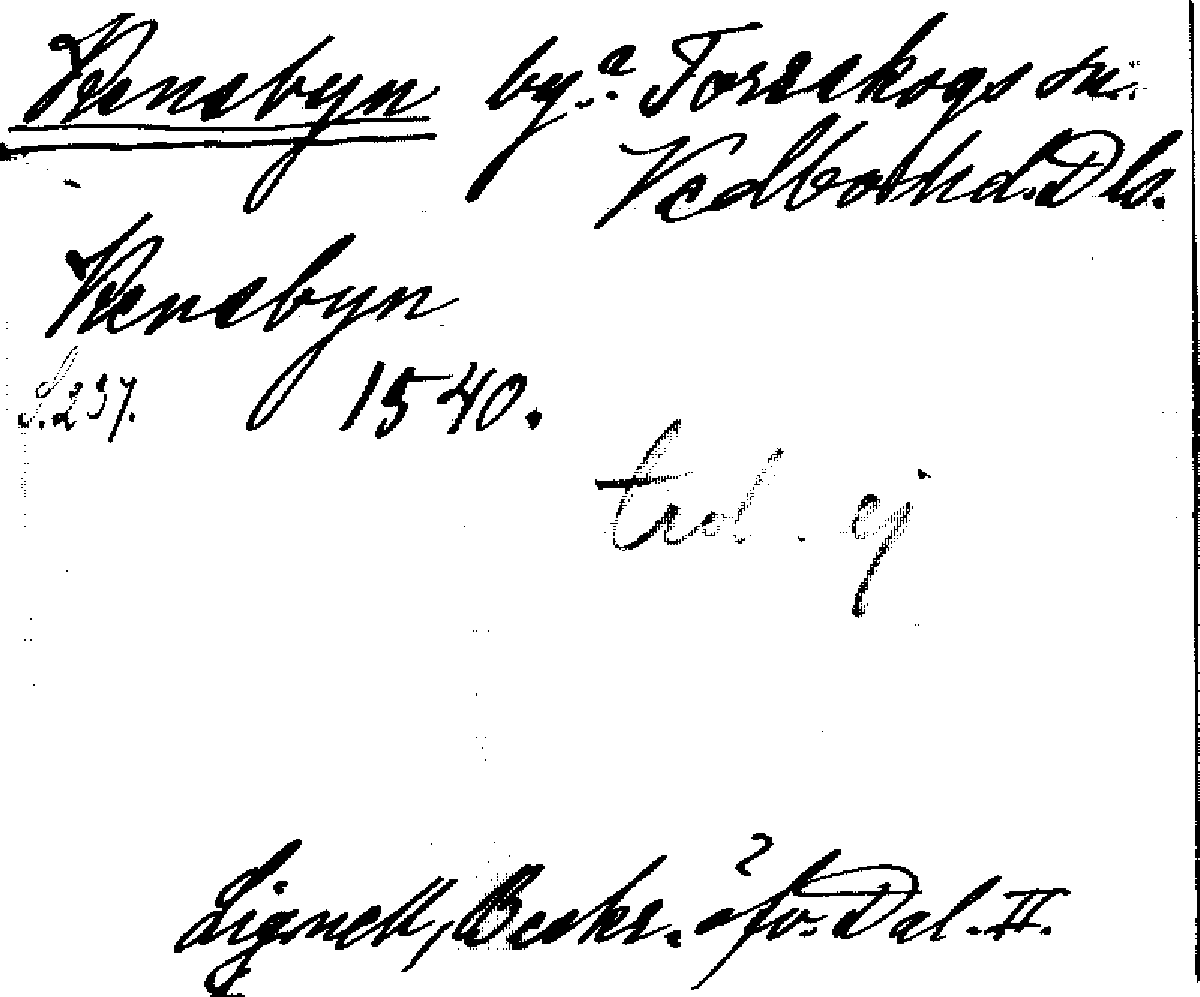 Rensbyn by? Torrskogs sn.
Vedbo hd. Dls.
Rensbyn
S. 237. 1540.
trol. ej
Lignell, Beskr. öfv. Dal. II.